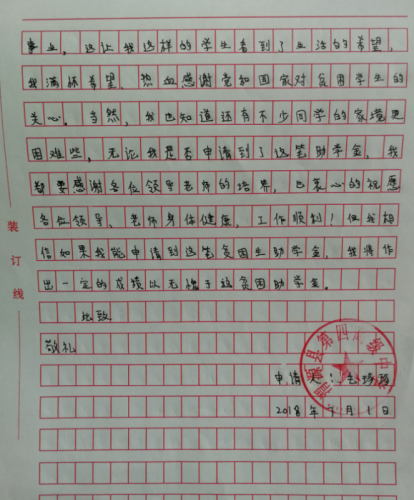 事业，这让我这样的学生看到了生活的希望，
我满怀希望、热血感谢党和国家对贫困学生的
关心。当然，我也知道还有不少同学的家境更
困难些，无论我是否申请到了这笔助学金，我
都要感谢各位领导老师的培养，也衷心的祝愿
各位领导、老师身体健康，工作顺利！但我相
信如果我能申请到这笔贫困生助学金，我将作
出一定的成绩以无愧于该贫困助学金。
此致
敬礼
申请人：
2018年 月1日
装订线
县第四 级中